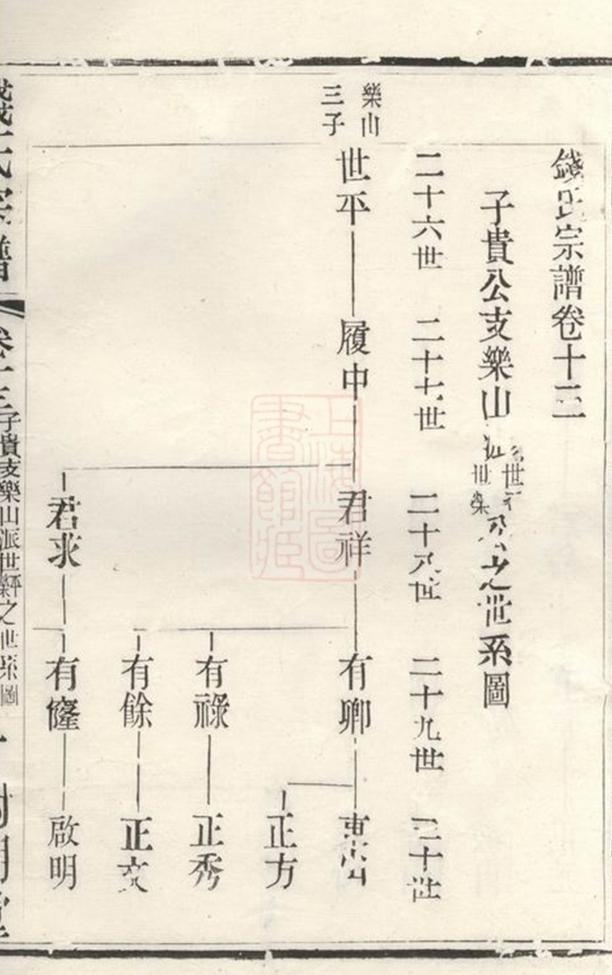 錢氏宗譜卷十三
子貴公支樂山
之世系圖
二十六世 二十七世 二十八世 二十九世 三十世
樂山
三子
世平 履中 君祥 有卿
正方
有祿 正秀
有餘 正文
君求 有隆 啟明
子貴支樂山派世
之世系圖